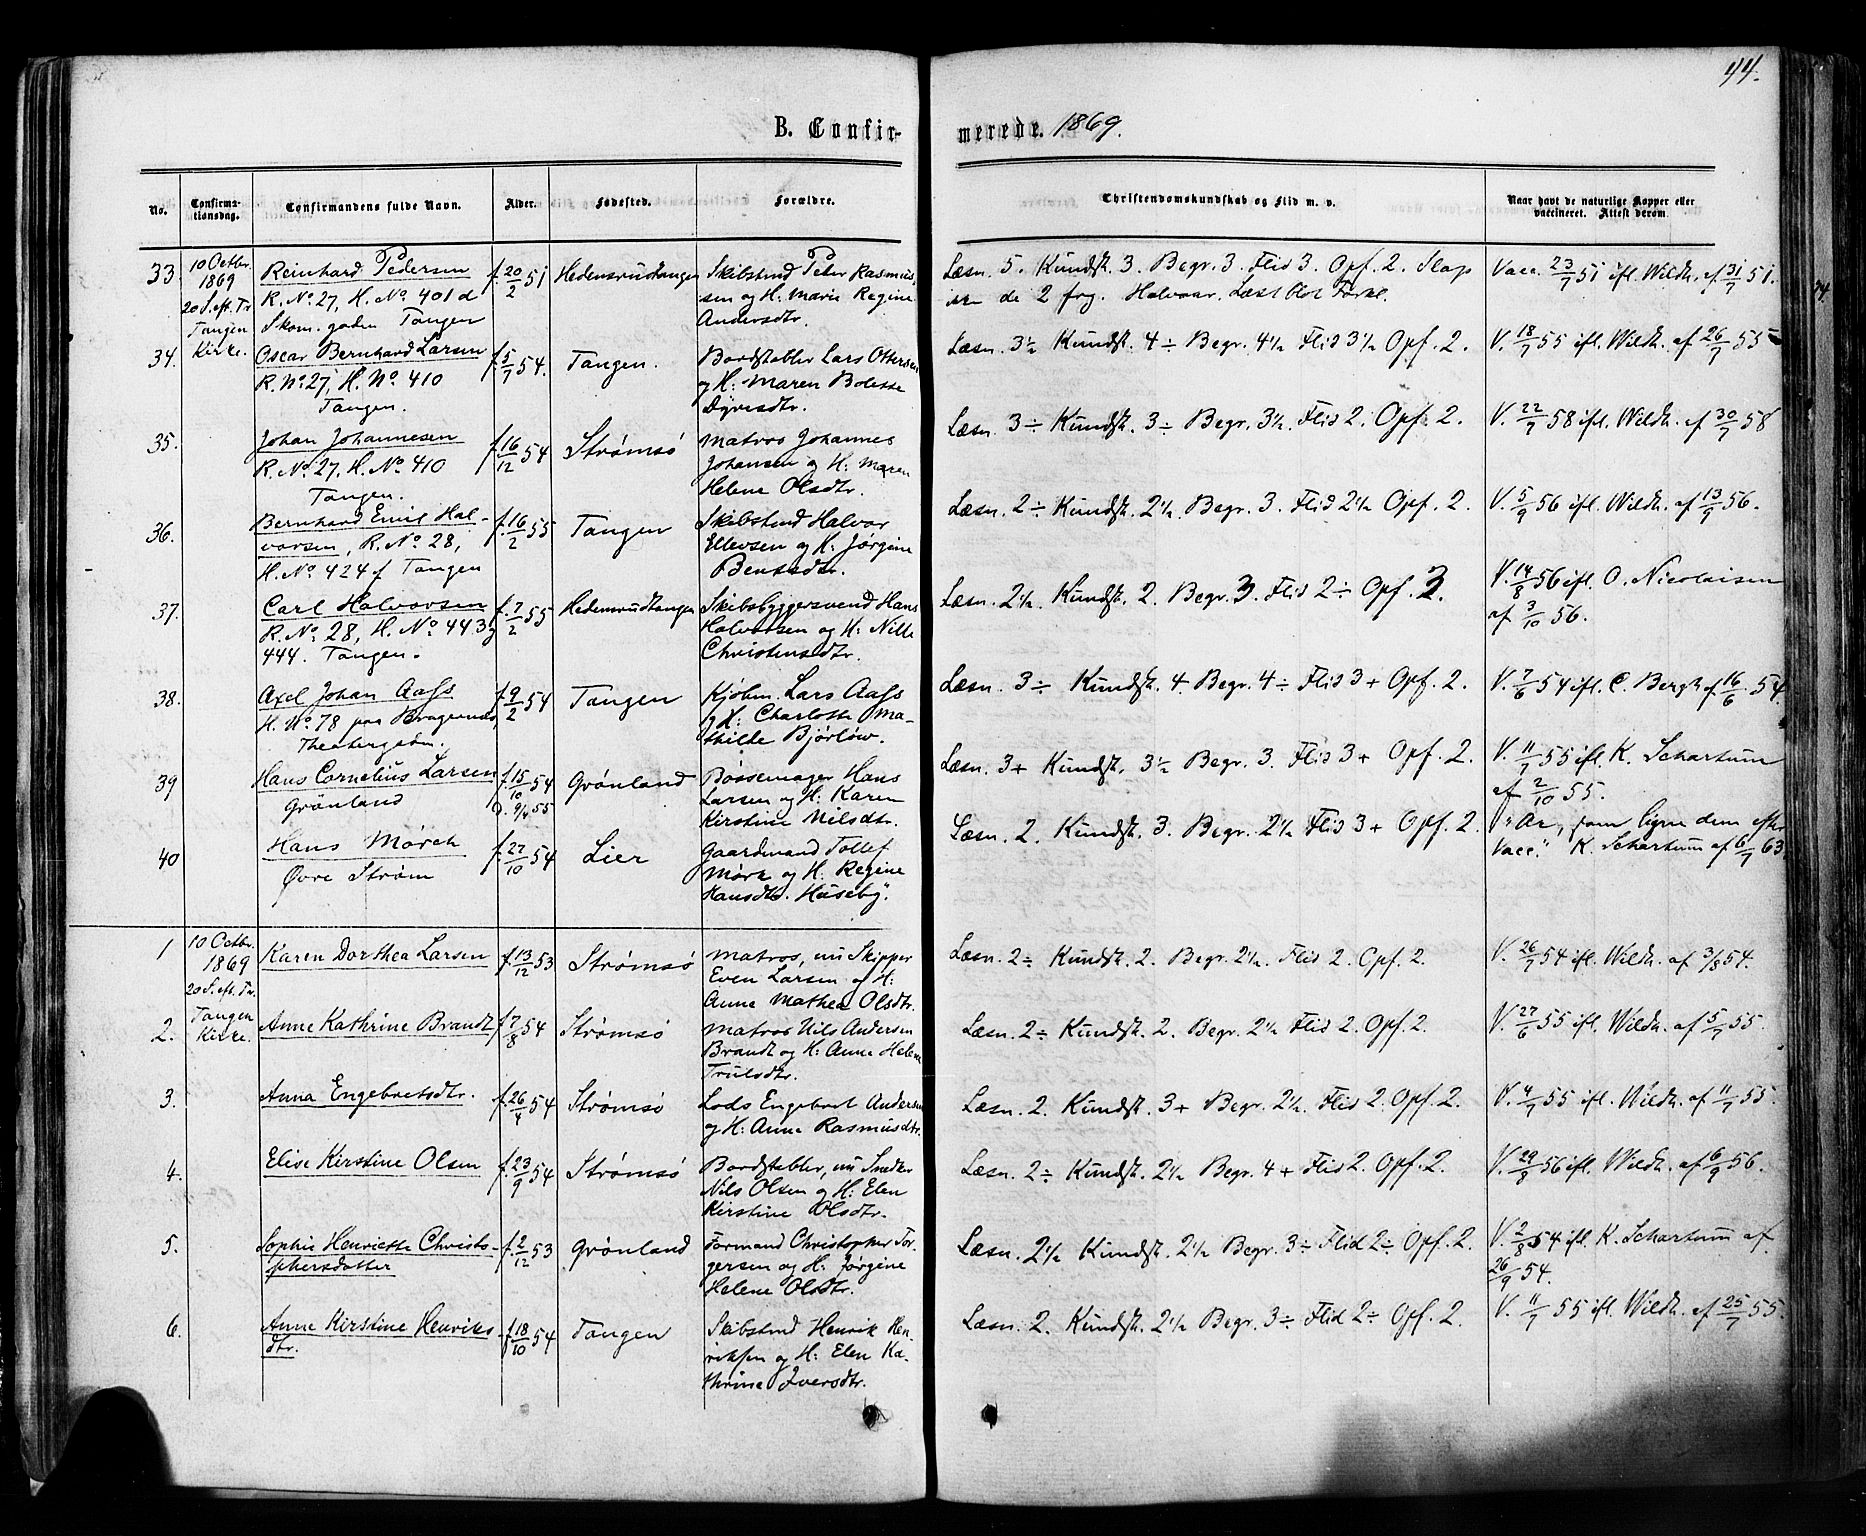 44.
B. Confirmerede. 1869.
No. Confirmationsdag. Confirmandens fulde Navn. Alder. Fødested. Forældre. Christendomskundskab og Flid m. v. Naar havt de naturlige Kopper eller vaccineret. Attest derom.
33. 10 Octbr. Reinhard Pedersen f. 20/2 51 Hedensrudtangen Skibstmd Peter Rasmus- Læsn. 5. Kundsk. 3. Begr. 3. Flid 3. Opf. 2. Slap Vacc. 23/7 51 ifl. Wildh. af 31/7 51.
1869 R. No 27, H. No 401 d sen og H: Marie Regine de 2 Læst blot Forkl.
20 S. eft. Tr. Skom. gaden Tangen Andersdtr.
Tangen
Kirke.
34. Oscar Bernhard Larsen f. 5/7 54. Tangen. Bordstabler Lars Ottersen Læsn. 3½ Kundsk. 4 ÷ Begr. 4½ Flid 3½ Opf. 2. V. 18/7 55 ifl. Wildh. af 26/7 55
R. No 27, H. No 410 og H: Maren Bolette
Tangen. Dyresdtr.
35. Johan Johannesen f. 16/12 54 Strømsö Matros Johannes Læsn. 3 ÷ Kundsk. 3 ÷ Begr. 3½ Flid 2. Opf. 2. V. 22/7 58 ifl. Wildh. af 30/7 58
R. No 27, H. No 410 Johansen og H: Maren
Tangen. Helene Olsdtr.
36. Bernhard Emil Hal- f. 16/2 55 Tangen Skibstmd Halvor Læsn. 2 ÷ Kundsk. 2½. Begr. 3. Flid 2½ Opf. 2. V. 5/9 56 ifl. Wildh. af 13/9 56.
vorsen, R. No 28, Ellevsen og H: Jørgine
H. No 424 f Tangen Bentsdtr.
37. Carl Halvorsen f. 7/2 55 Hedensrudtangen Skibsbyggersvend Hans Læsn. 2½. Kundsk. 2. Begr. 3. Flid 2 ÷ Opf. 2. V. 14/8 56 ifl. O. Nicolaisen
R. No 28, H. No 443 & Halvorsen og H: Nille af 3/10 56.
444. Tangen. Christensdtr.
38. Axel Johan Aass f. 9/2 54 Tangen Kjøbm. Lars Aass Læsn. 3 ÷ Kundsk. 4. Begr. 4 ÷ Flid 3 + Opf. 2. V. 7/6 54 ifl. C. Bergh af 16/6 54.
H. No 78 paa Bragernæs og H: Charlotte Ma-
Theatergaden. thilde Bjørløw.
39 Hans Cornelius Larsen f. 15/10 54 Grønland Bøssemager Hans Læsn. 3+ Kundsk. 3½ Begr. 3. Flid 3+ Opf. 2. V. 11/7 55 ifl. K. Schartum
Grönland D. 9/4 55 Larsen og H: Karen af 2/10 55.
Kirstine Nilsdtr.
40 Hans Mørch f. 27/10 54 Lier Gaardmand Tollef Læsn. 2. Kundsk. 3. Begr. 2½ Flid 3 + Opf. 2. "Ar, som ligne dem efter
Øvre Strøm Mørk og H: Regine Vacc." K. Schartum af 6/7 63.
Hansdtr. Huseby.
1 10 Octbr. Karen Dorthea Larsen f. 13/12 53 Strømsö Matros, nu Skipper Læsn. 2 ÷ Kundsk. 2. Begr. 2½. Flid 2. Opf. 2. V. 26/7 54 ifl. Wildh. af 3/8 54.
1869 Even Larsen og H:
20 S. eft. Tr. Anne Mathea Olsdtr.
Tangen
Kirke.
2. Anne Kathrine Brandt f. 7/8 54 Strømsö Matros Nils Andersen Læsn. 2 ÷ Kundsk. 2. Begr. 2½ Flid 2. Opf. 2. V. 27/6 55 ifl. Wildh. af 5/7 55.
Brandt og H: Anne Helene
Trulsdtr.
3. Anna Engebretsdtr. f. 26/7 54 Strømsö Lods Engebret Andersen Læsn. 2. Kundsk. 3+ Begr. 2½. Flid 2. Opf. 2. V. 4/7 55 ifl. Wildh. af 11/7 55.
og H: Anne Rasmusdtr.
4. Elise Kirstine Olsen f. 23/9 54 Strømsö Bordstabler, nu Snedker Læsn. 2 ÷ Kundsk. 2½ Begr. 4 + Flid 2. Opf. 2. V. 29/8 56 ifl. Wildh. af 6/9 56.
Nils Olsen og H: Elen
Kirstine Olsdtr.
5. Sophie Henriette Christo- f. 2/12 53 Grønland Formand Christopher Tor- Læsn. 2½ Kundsk. 2½ Begr. 3 ÷ Flid 2 ÷ Opf. 2. V. 2/8 54 ifl. K. Schartum af
phersdatter gersen og H: Jørgine 26/9 54.
Helene Olsdtr.
6. Anne Kirstine Henriks- f. 18/10 54 Tangen Skibstmd Henrik Hen- Læsn. 2. Kundsk. 2½ Begr. 3 ÷ Flid 2 ÷ Opf. 2. V. 11/7 55 ifl. Wildh. af 25/7 55.
dtr. riksen og H: Elen Ka-
thrine Iversdtr.